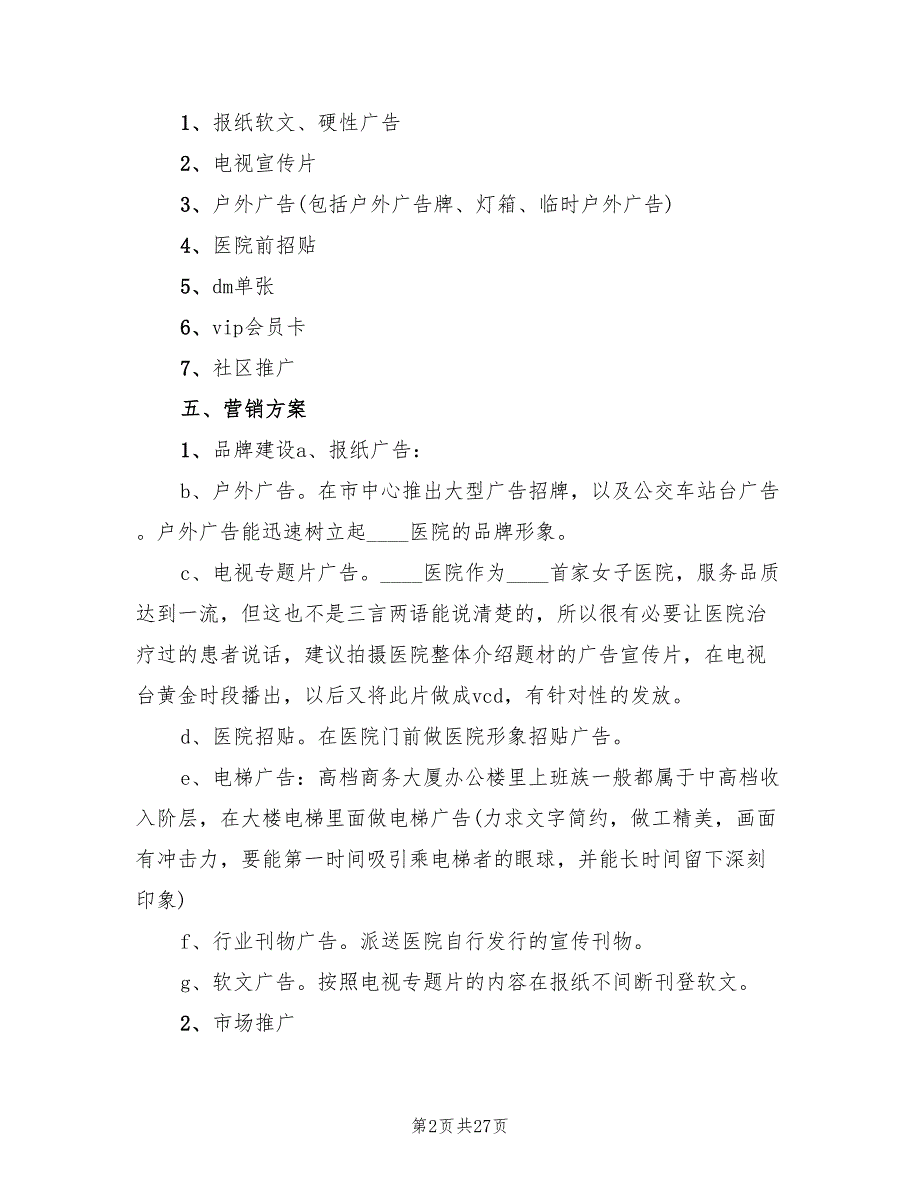 1、报纸软文、硬性广告
2、电视宣传片
3、户外广告(包括户外广告牌、灯箱、临时户外广告)
4、医院前招贴
5、dm单张
6、vip会员卡
7、社区推广
五、营销方案
1、品牌建设a、报纸广告：
b、户外广告。在市中心推出大型广告招牌，以及公交车站台广告
。户外广告能迅速树立起____医院的品牌形象。
c、电视专题片广告。____医院作为____首家女子医院，服务品质
达到一流，但这也不是三言两语能说清楚的，所以很有必要让医院治
疗过的患者说话，建议拍摄医院整体介绍题材的广告宣传片，在电视
台黄金时段播出，以后又将此片做成vcd，有针对性的发放。
d、医院招贴。在医院门前做医院形象招贴广告。
e、电梯广告：高档商务大厦办公楼里上班族一般都属于中高档收
入阶层，在大楼电梯里面做电梯广告(力求文字简约，做工精美，画面
有冲击力，要能第一时间吸引乘电梯者的眼球，并能长时间留下深刻
印象)
f、行业刊物广告。派送医院自行发行的宣传刊物。
g、软文广告。按照电视专题片的内容在报纸不间断刊登软文。
2、市场推广
第2页共27页